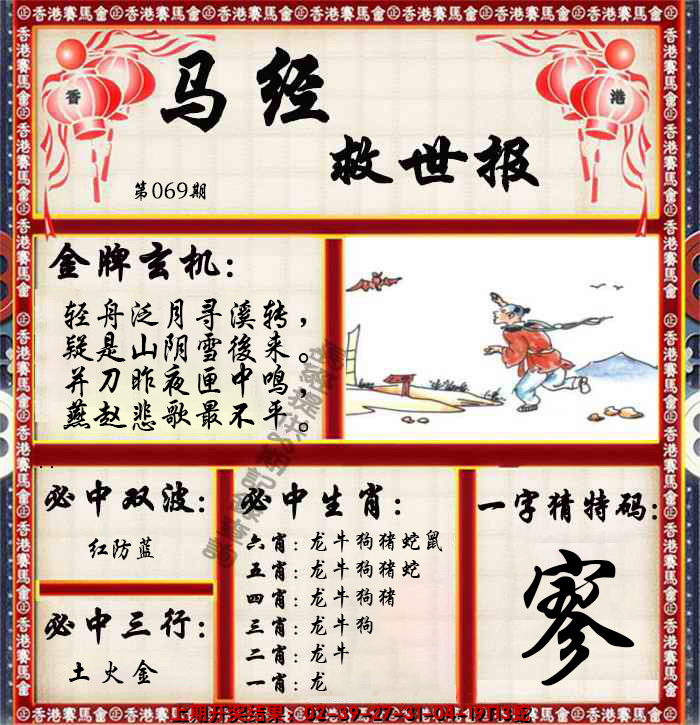 香港賽馬會
香
港
马经
救世报
第069期
金牌玄机：
轻舟泛月寻溪转，
疑是山阴雪後来。
并刀昨夜匣中鸣，
燕赵悲歌最不平。
必中双波：
红防蓝
必中三行：
土火金
必中生肖：
六肖：龙牛狗猪蛇鼠
五肖：龙牛狗猪蛇
四肖：龙牛狗猪
三肖：龙牛狗
二肖：龙牛
一肖：龙
一字猜特码：
寥
上期开奖结果：02-39-27-31-04-19T13蛇